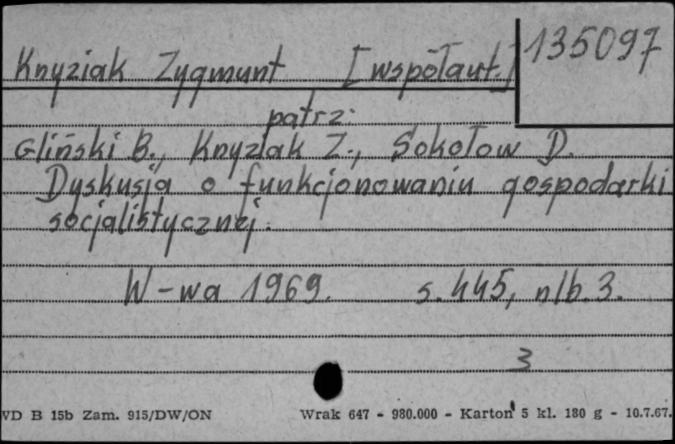 Knyziak Zygmunt [współaut.] 135097
patrz:
Gliński B., Knyziak Z., Sokołow D.
Dyskusja o funkcjonowaniu gospodarki
socjalistycznej.
W-wa 1969. s. 445, nlb. 3.
3
VD B 15b Zam. 915/DW/ON Wrak 647 - 980.000 - Karton 5 kl. 180 g - 10.7.67.